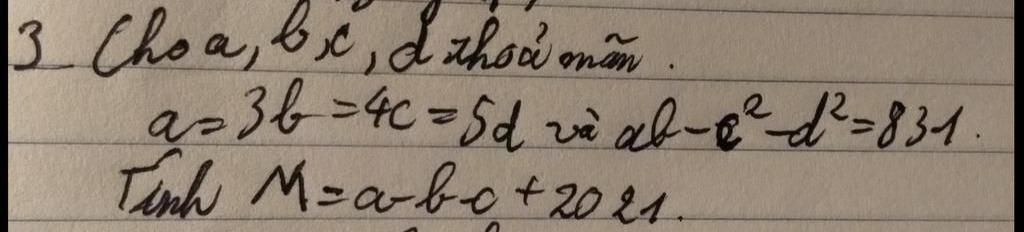 3 Cho a, b, c, d thoả mãn.
a = 3b = 4c = 5d và ab - c² - d² = 831.
Tính M = a - b - c + 2021.